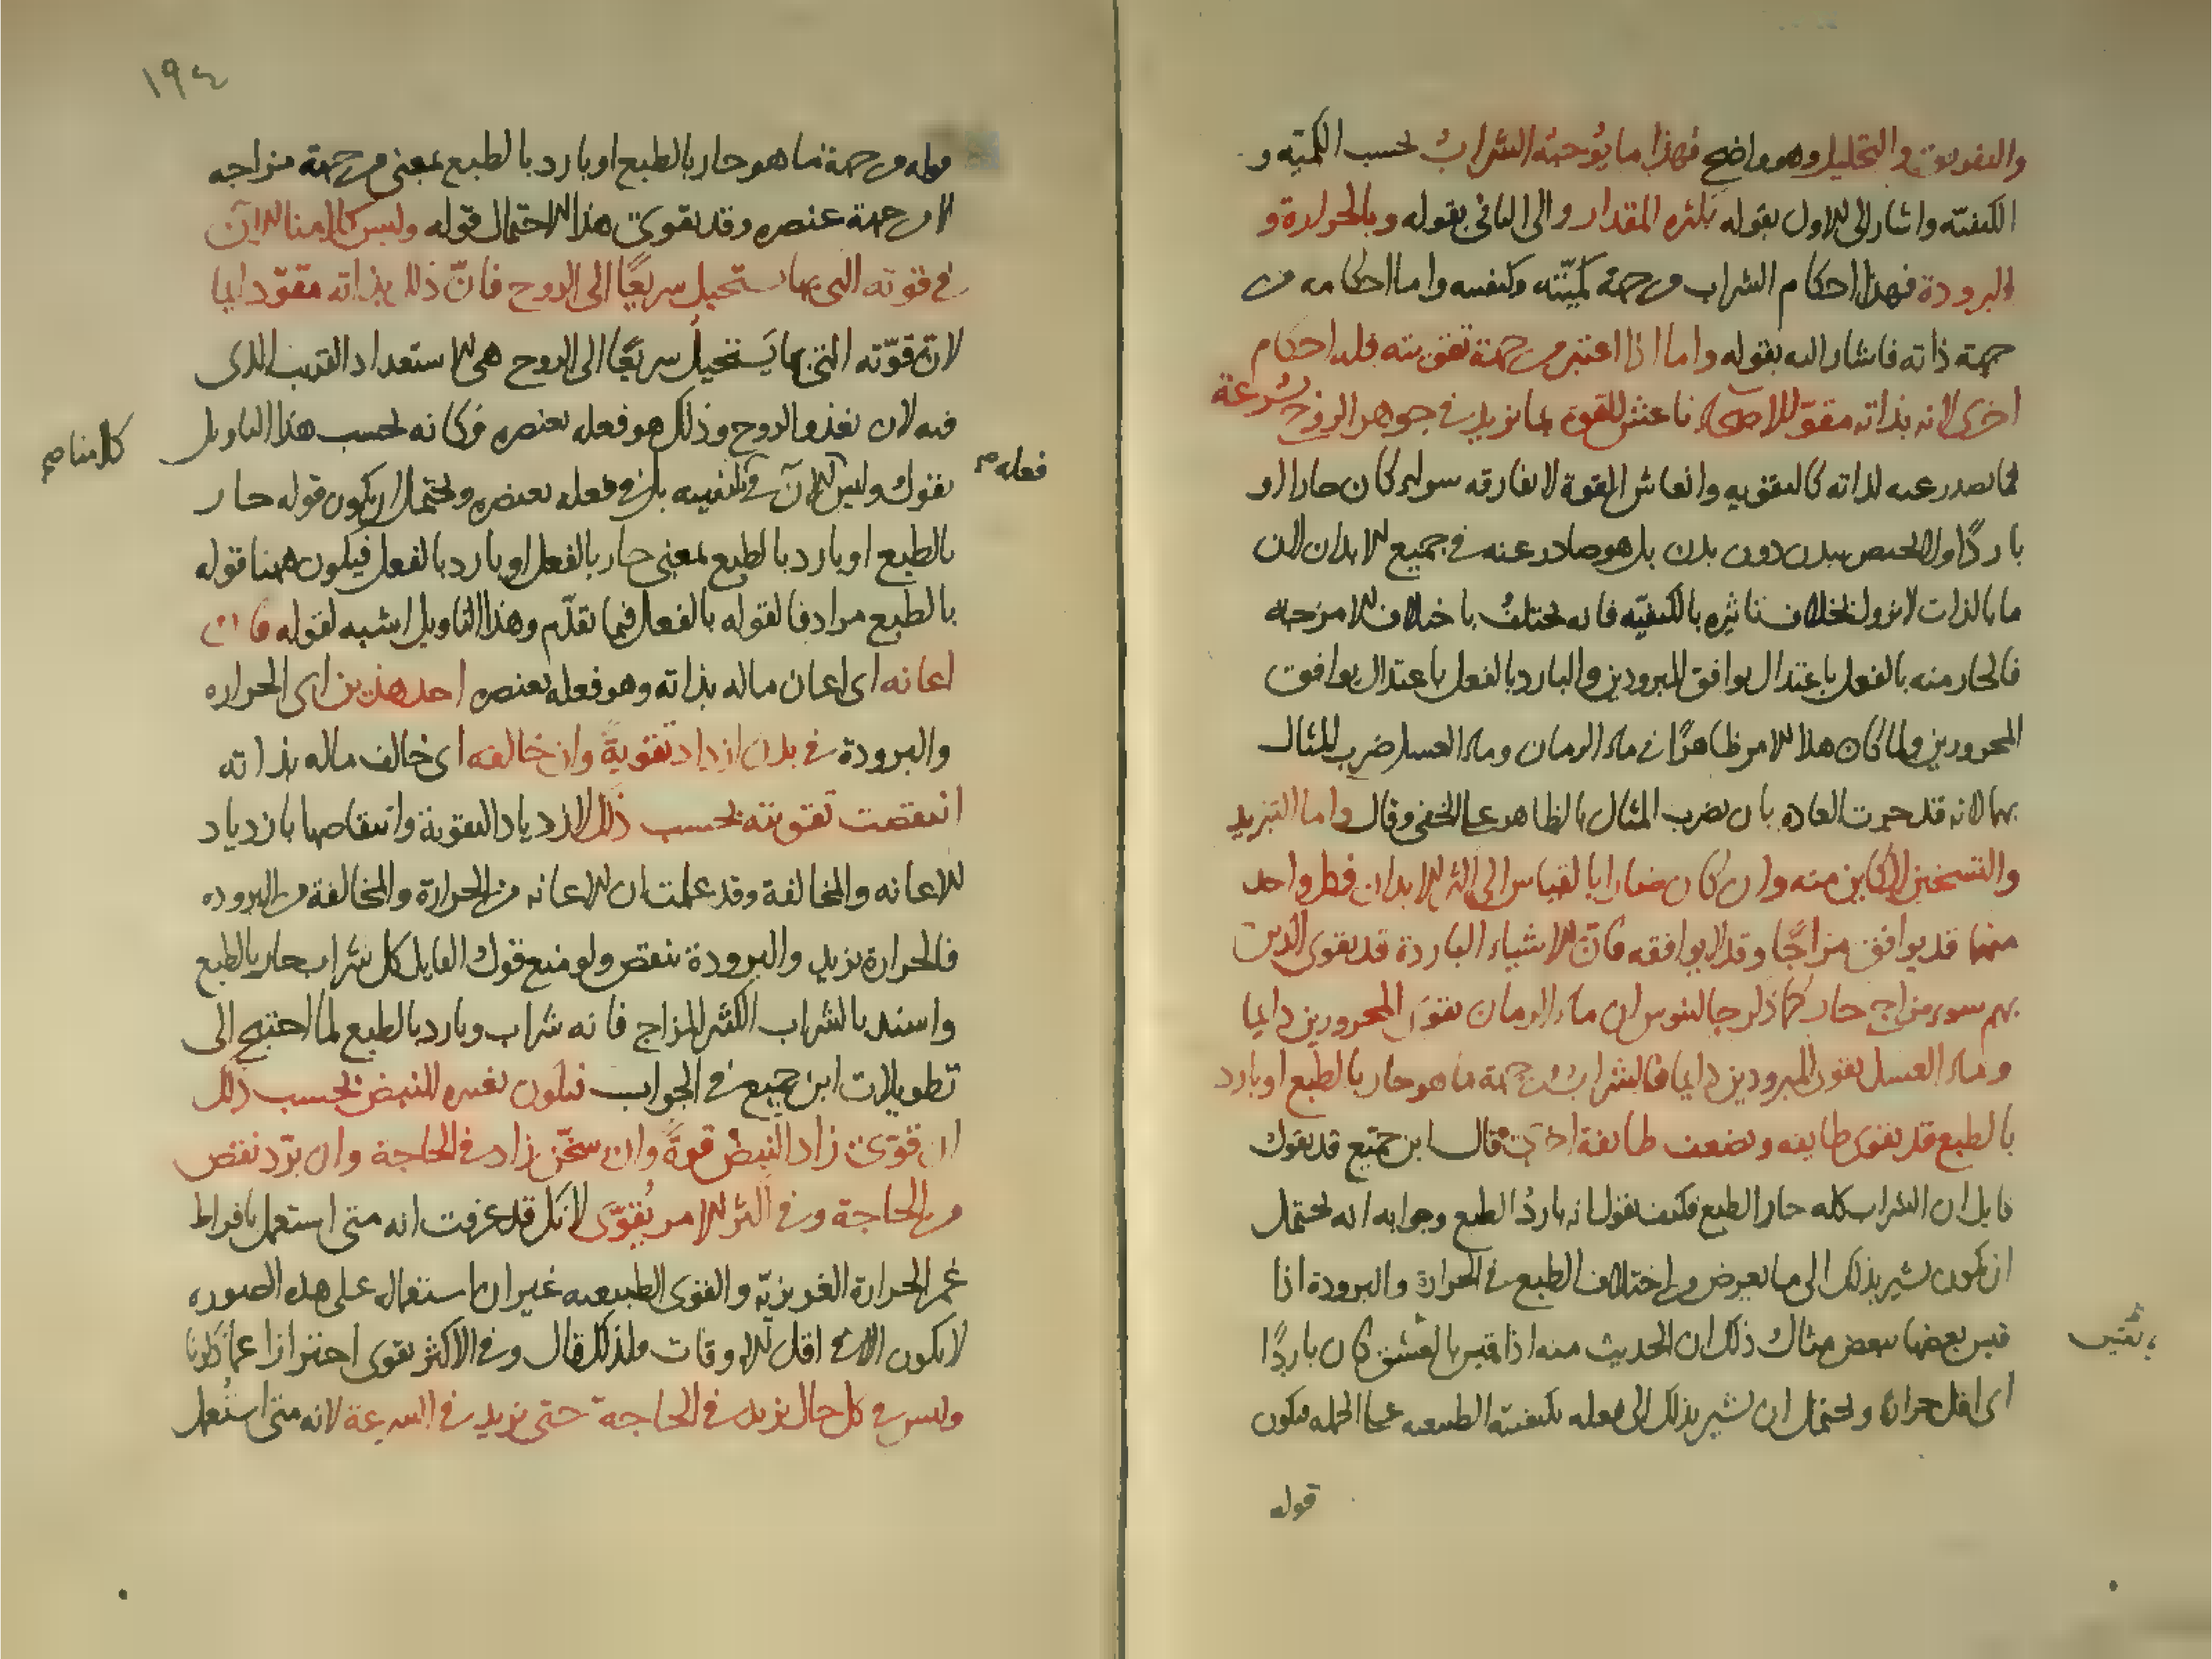 والتقوية والتحليل وهو واضح فهذا ما يوجبه الشراب بحسب الكمية و
الكيفية واشار الى الاول بقوله بكثرة المقدار والى الثانى بقوله وبالحرارة و
البرودة فهذا احكام الشراب من جهة كميته وكيفيته واما احكامه من
جهة ذاته فاشار اليه بقوله واما اذا اعتبر من جهة تقويته فله احكام
اخرى لانه بذاته مقو للاصحاء ناعش للقوة بما يزيد فى جوهر الروح بسرعة
فما يصدر عنه لذاته كالتقوية وانعاش القوة لا يفارقه سواء كان حارا او
باردا ولا يختص ببدن دون بدن بل هو صادر عنه فى جميع الابدان لان
ما بالذات لا يزول بخلاف تاثيره بالكيفية فانه يختلف باختلاف الامزجة
فالحار منه بالفعل باعتدال يوافق المبرودين والبارد بالفعل باعتدال يوافق
المحرورين ولما كان هذا الامر ظاهرا فى ماء الرمان وماء العسل ضرب المثال
بهما لانه قد جرت العادة بان يضرب المثال بالظاهر على الخفى وقال واما التبريد
والتسخين الكاين منه وان كان ضارا بالقياس الى اكثر الابدان فكل واحد
منهما قد يوافق مزاجا وقد لا يوافقه فان الاشياء الباردة قد يقوى الذين
بهم سوء مزاج حار كما ذكر جالينوس ان ماء الرمان يقوى المحرورين دايما
وماء العسل يقوى المبرودين دايما فالشراب من جهة ما هو حار بالطبع او بارد
بالطبع قد يقوى طايفة ويضعف طايفة اخرى قال ابن جميع قد يقول
قايل ان الشراب كله حار الطبع فكيف يقول انه بارد الطبع وجوابه انه يحتمل
ان يكون يشير بذلك الى ما يعرض من اختلاف الطبع فى الحرارة والبرودة اذا
قيس بعضها ببعض مثال ذلك ان الحديث منه اذا قيس بالعتيق كان باردا
اى اقل حرارة ويحتمل ان يشير بذلك الى فعله بكيفيته الطبيعية على الجملة فيكون
قوله
١٩٤
قوله من جهة ما هو حار بالطبع او بارد بالطبع بمعنى من جهة مزاجه
لا من جهة عنصره وقد يقوى هذا الاحتمال قوله وليس كلامنا الآن
فى قوته التى بها يستحيل سريعا الى الروح فان ذلك بذاته مقو دايما
لان قوته التى بها يستحيل سريعا الى الروح هى الاستعداد القريب الذى
فيه لان يغذو الروح وذلك هو فعله بعنصره فكانه بحسب هذا التاويل
يقول وليس الآن فى كيفيته بل فى فعله بعنصره ويحتمل ان يكون قوله حار
كلامنا صح
فعله
بالطبع او بارد بالطبع بمعنى حار بالفعل او بارد بالفعل فيكون ههنا قوله
بالطبع مرادفا لقوله بالفعل فيما تقدم وهذا التاويل اشبه لقوله فان
اعانه اى اعان ماله بذاته وهو فعله بعنصره احد هذين اى الحرارة
والبرودة فى بدن ازداد تقوية وان خالفه اى خالف ماله بذاته
انتقصت تقويته بحسب ذلك لازدياد التقوية وانتقاصها بازدياد
الاعانة والمخالفة وقد علمت ان الاعانة من الحرارة والمخالفة من البرودة
فالحرارة يزيد والبرودة ينقص ولو منع قول القايل كل شراب حار بالطبع
واسند بالشراب الكثير المزاج فانه شراب وبارد بالطبع لما احتيج الى
تطويلات ابن جميع فى الجواب فيكون تغييره للنبض بحسب ذلك
ان قوى زاد النبض قوة وان سخن زاد فى الحاجة وان برد نقص
من الحاجة وفى اكثر الامر يقوى لانك قد عرفت انه متى استعمل بافراط
غمر الحرارة الغريزية والقوى الطبيعية غير ان استعماله على هذه الصورة
لا يكون الا فى اقل الاوقات ولذلك قال وفى الاكثر يقوى احترازا عما ذكرنا
وليس فى كل حال يزيد فى الحاجة حتى يزيد فى السرعة لانه متى استعمل